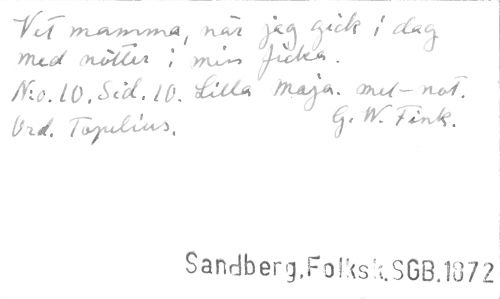 Vet mamma, när jag gick i dag
med nötter i min ficka.
N:o. 10. Sid. 10. Lilla Maja. mel-not.
Ord. Topelius. G. W. Fink.
Sandberg.Folksk.SGB.1872